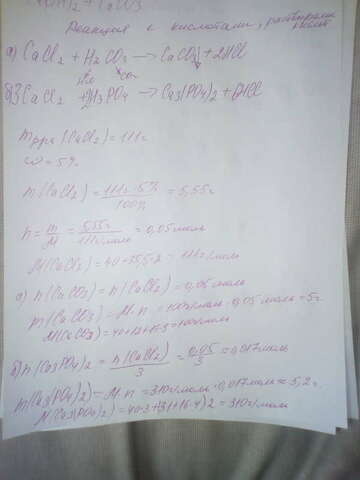 + CaCO3
Реакция с кислотами,
а) CaCl2 + H2CO3 → CaCO3↓ + 2HCl
H2O CO2
б) 3CaCl2 + 2H3PO4 → Ca3(PO4)2 + 6HCl
mр-ра (CaCl2) = 111г
ω = 5%
m(CaCl2) = 111г · 5% / 100% = 5,55г
n = m/M = 5,55г / 111г/моль = 0,05моль
M(CaCl2) = 40 + 35,5·2 = 111г/моль
а) n(CaCO3) = n(CaCl2) = 0,05моль
m(CaCO3) = M·n = 100г/моль · 0,05моль = 5г
M(CaCO3) = 40+12+16·3 = 100г/моль
б) n(Ca3PO4)2 = n(CaCl2) / 3 = 0,05 / 3 = 0,017моль
m(Ca3(PO4)2) = M·n = 310г/моль · 0,017моль = 5,2г
M(Ca3(PO4)2) = 40·3+(31+16·4)2 = 310г/моль